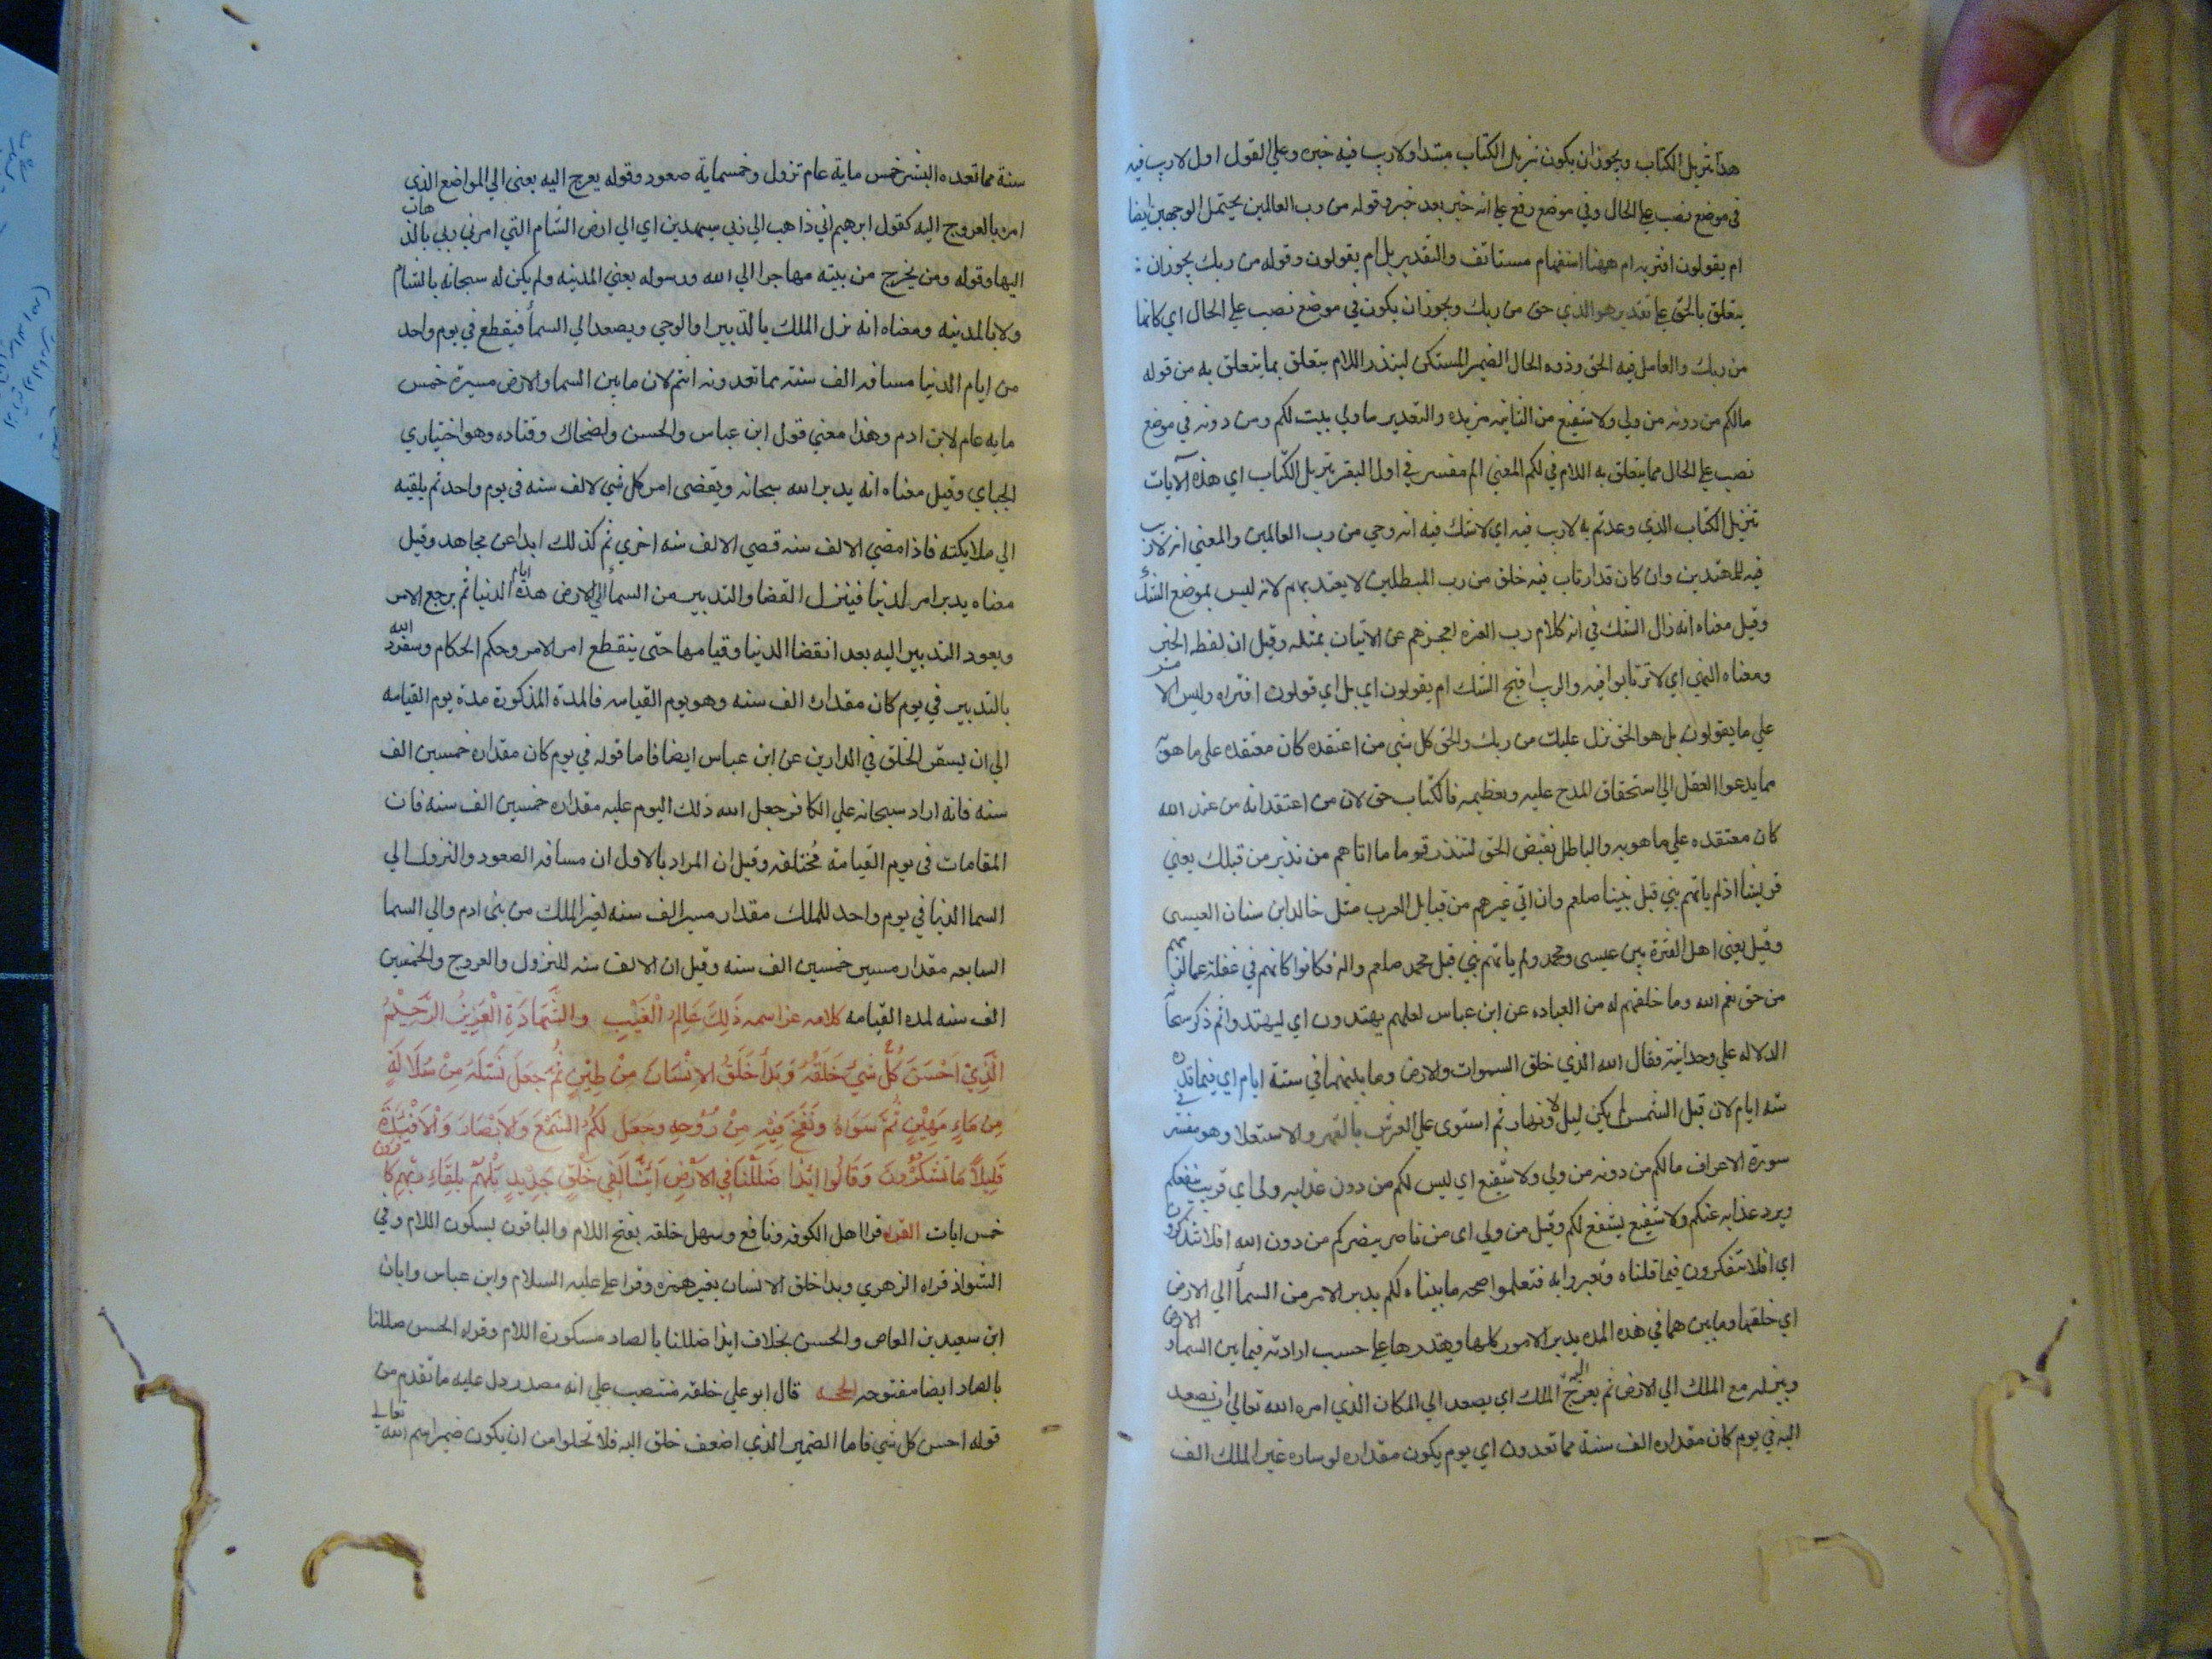 هذا تنزيل الكتاب ويجوز ان يكون تنزيل الكتاب مبتدا ولا ريب فيه خبره وعلي القول اول لا ريب فيه
في موضع نصب علي الحال وفي موضع رفع علي انه خبر بعد خبر وقوله من رب العالمين يحتمل الوجهين ايضا
ام يقولون افتريه ام ههنا استفهام مستانف والتقدير بل ام يقولون وقوله من ربك يجوز ان :
يتعلق بالحق علي تقدير هو الذي حق من ربك ويجوز ان يكون في موضع نصب علي الحال اي كائنا
من ربك والعامل فيه الحق وذو الحال الضمير المستكن لينذر اللام يتعلق بما يتعلق به من قوله
مالكم من دونه من ولي ولا شفيع من الثانيه مزيده والتقدير ما ولي يبيت لكم ومن دونه في موضع
نصب علي الحال مما يتعلق به اللام في لكم المعني الم مفسر في اول البقر تنزيل الكتاب اي هذه الآيات
تنزيل الكتاب الذي وعدتم به لا ريب فيه اي لا شك فيه انه وحي من رب العالمين والمعني انه لا ريب
فيه للمهتدين وان كان قد ارتاب فيه خلق من رب المبطلين لا يعتد بهم لانه ليس بموضع الشك
وقيل معناه انه زال الشك في انه كلام رب العزه لعجزهم عن الاتيان بمثله وقيل ان لفظه الخبر
ومعناه النهي اي لا ترتابوا فيه والريب اقبح الشك ام يقولون اي بل اي قولون افتراه وليس الامر
علي ما يقولون بل هو الحق نزل عليك من ربك والحق كل شي من اعتقده كان معتقده علي ما هو به
مما يدعوا العقل الي استحقاق المدح عليه وتعظيمه فالكتاب حق لان من اعتقد انه من عند الله
كان معتقده علي ما هو به والباطل نقيض الحق لتنذر قوما ما اتاهم من نذير من قبلك يعني
قريشا اذ لم ياتهم نبي قبل نبينا صلعم وان اتي غيرهم من قبايل العرب مثل خالد ابن سنان العبسي
وقيل يعني اهل الفترة بين عيسى ومحمد ولم ياتهم نبي قبل محمد صلعم واله فكانوا كانهم في غفلة عما لزمهم
من حق نعم الله وما خلقهم له من العباده عن ابن عباس لعلهم يهتدون اي ليهتدوا ثم ذكر سبحا
الدلاله علي وحدانيته فقال الله الذي خلق السموات والارض وما بينهما في ستة ايام اي فيما قدره
سته ايام لان قبل الشمس لم يكن ليل ولا نهار ثم استوى علي العرش بالقهر والاستعلا وهو مفسر في
سورة الاعراف مالكم من دونه من ولي ولا شفيع اي ليس لكم من دون عذابه ولي اي قريب ينفعكم
ويرد عذابه عنكم ولا شفيع يشفع لكم وقيل من ولي اى من ناصر ينصركم من دون الله افلا تتذكرون
اي افلا تتفكرون فيما قلناه وتعتبروا به فتعلموا صحه ما بيناه لكم يدبر الامر من السمآ الي الارض
اي خلقهما وما بين هما في هذه المده يدبر الامور كلها ويقدرها علي حسب ارادته فيما بين السما والارض
وينزله مع الملك الي الارض ثم يعرج اليه الملك اي يصعد الي المكان الذي امره الله تعالي ان يصعد
اليه في يوم كان مقداره الف سنة مما تعدون اي يوم يكون مقداره لو ساره غير الملك الف
سنة مما تعده البشر خمس ماية عام نزول وخمسماية صعود وقوله يعرج اليه يعني الي المواضع الذي
امره بالعروج اليه كقول ابرهيم اني ذاهب الي ربي سيهدين اي الي ارض الشام التي امرني ربي بالذهاب
اليها وقوله ومن يخرج من بيته مهاجرا الي الله ورسوله يعني المدينه ولم يكن له سبحانه بالشام
ولا بالمدينه ومعناه انه نزل الملك بالتدبير او الوحي ويصعد الي السمآ فيقطع في يوم واحد
من ايام الدنيا مسافه الف سنته مما تعدونه انتم لان ما بين السما والارض مسيرة خمس
مايه عام لابن ادم وهذا معني قول ابن عباس والحسن والضحاك وقتاده وهو اختياري
الجباي وقيل معناه انه يدبر الله سبحانه ويقضى امر كل شي لالف سنه في يوم واحد ثم يلقيه
الي ملايكته فاذا مضي الالف سنه قصي الالف سنه اخري ثم كذلك ابدا عن مجاهد وقيل
معناه يدبر امر الدنيا فينزل القضا والتدبير من السمآ الي الارض هذه ايام الدنيا ثم يرجع الامر
ويعود التدبير اليه بعد انقضا الدنيا وقيامها حتى ينقطع امر الامر وحكم الحكام وينفرد الله
بالتدبير في يوم كان مقداره الف سنه وهو يوم القيامه فالمدة المذكورة مدة يوم القيامه
الي ان يستقر الخلق في الدارين عن ابن عباس ايضا فاما قوله في يوم كان مقداره خمسين الف
سنه فانه اراد سبحانه علي الكافر جعل الله ذلك اليوم عليه مقداره خمسين الف سنه فان
المقامات في يوم القيامة مختلفه وقيل ان المراد بالاول ان مسافه الصعود والنزول الي
السما الدنيا في يوم واحد للملك مقدار مسير الف سنه لغير الملك من بني ادم والي السما
السابعه مقدار مسير خمسين الف سنه وقيل ان الالف سنه للنزول والعروج والخمسين
الف سنه لمده القيامه كلامه عز اسمه ذَلِكَ عَالِمُ الْغَيْبِ وَالشَّهَادَةِ الْعَزِيزُ الرَّحِيْمُ
الَّذِيْ اَحْسَنَ كُلَّ شَيْءٍ خَلَقَهُ وَبَدَأَ خَلَقُ الاِنْسَانَ مِنْ طِيْنٍ ثُمَّ جَعَلَ نَسْلَهُ مِنْ سُلَالَةٍ
مِنْ مَاءٍ مَهِيْنٍ ثُمَّ سَوَّاهُ وَنَفَخَ فِيْهِ مِنْ رُوْحِهِ وَجَعَلَ لَكُمُ السَّمْعَ وَالاَبْصَارَ وَالْاَفْئِدَةَ
قَلِيلًا مَا تَشْكُرُونَ وَقَالُوا ائِذَا ضَلَلْنَا فِي الاَرْضِ اَئِنَّا لَفِي خَلْقٍ جَدِيْدٍ بَلْ هُمْ بِلِقَاءِ رَبِّهِمْ كافرون
خمس ايات القراه قرا اهل الكوفه ونافع وسهل خلقه بفتح اللام والباقون بسكون اللام وفي
الشواذ قراه الزهري وبدا خلق الانسان بغير همزه وقرا علي عليه السلام وابن عباس وابان
ابن سعيد بن العاص والحسن بخلاف ايذا ضللنا بالصاد مسكورة اللام وقراه الحسن صللنا
بالصاد ايضا مفتوحه الحجه قال ابو علي خلقه منتصب علي انه مصدر دل عليه ما تقدم من
قوله احسن كل شي فاما الضمير الذي اضعف خلق اليه فلا تخلوا من ان يكون ضمير اسم الله تعالي